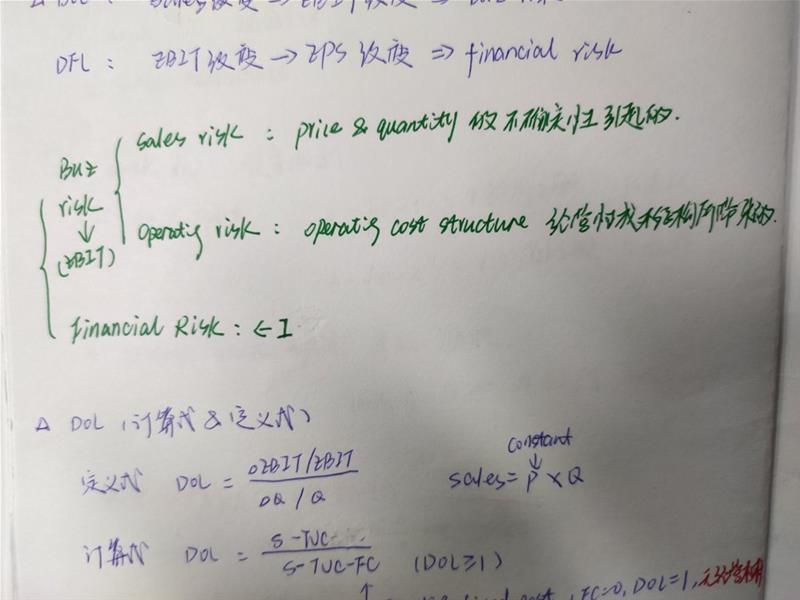 DFL : EBIT 改变 → EPS 改变 ⇒ financial risk
Buz risk ↓ (EBIT)
sales risk : price & quantity 的不确定性引起的.
operatig risk : operatig cost structure 经营性成本结构所带来的.
financial Risk : ← I
△ DOL (计算式 & 定义式)
定义式 DOL = △EBIT/EBIT / △Q / Q
constant ↓
sales = P × Q
计算式 DOL = S-TVC / S-TVC-FC (DOL≥1)
↑ FC=0, DOL=1,